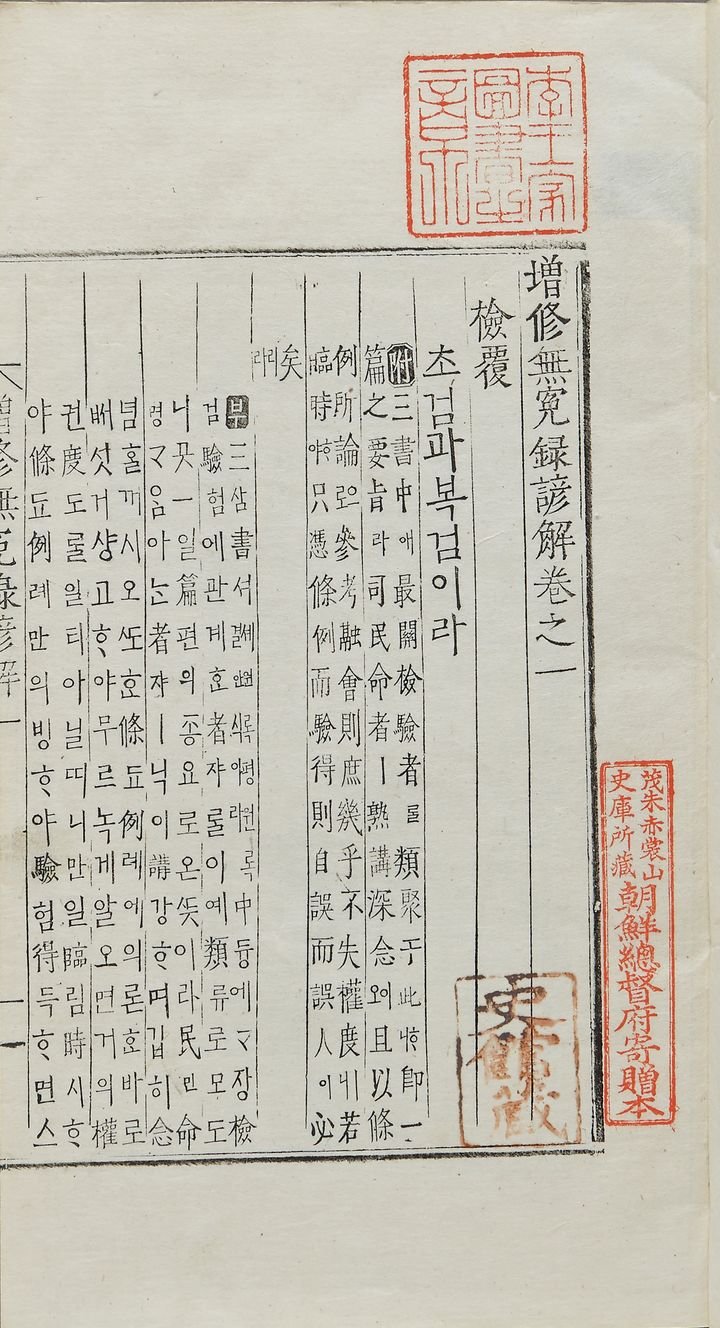 增修無寃録諺解卷之一
檢覆
초검과복검이라
附三書中애最關檢驗者를類聚于此ᄒᆞ니即一
篇之要旨라司民命者ㅣ熟講深念ᄒᆞ고且以條
例所論으로參考融會則庶幾乎不失權度ㅣ니若
臨時ᄒᆞ야只憑條例而驗得則自誤而誤人이必
矣리라
부三삼書서中듕에ᄀᆞ장檢
검驗험에관계ᄒᆞᆫ者쟈ᄅᆞᆯ이예類류로모도
니곳一일篇편의죵요로온ᄯᅳᆺ이라民민命
명ᄀᆞ음아ᄂᆞᆫ者쟈ㅣ닉이講강ᄒᆞ며깁히念
념ᄒᆞᆯ꺼시오ᄯᅩᄒᆞᆫ條됴例례에의론ᄒᆞᆫ바로
ᄡᅥ섯거샹고ᄒᆞ야무르녹게알오면거의權
권度도ᄅᆞᆯ일티아닐ᄯᅵ니만일臨림時시ᄒᆞ
야條됴例례만의빙ᄒᆞ야驗험得득ᄒᆞ면스
增修無寃錄諺解 一
一
李王家圖書之章
茂朱赤裳山史庫所藏朝鮮總督府寄贈本